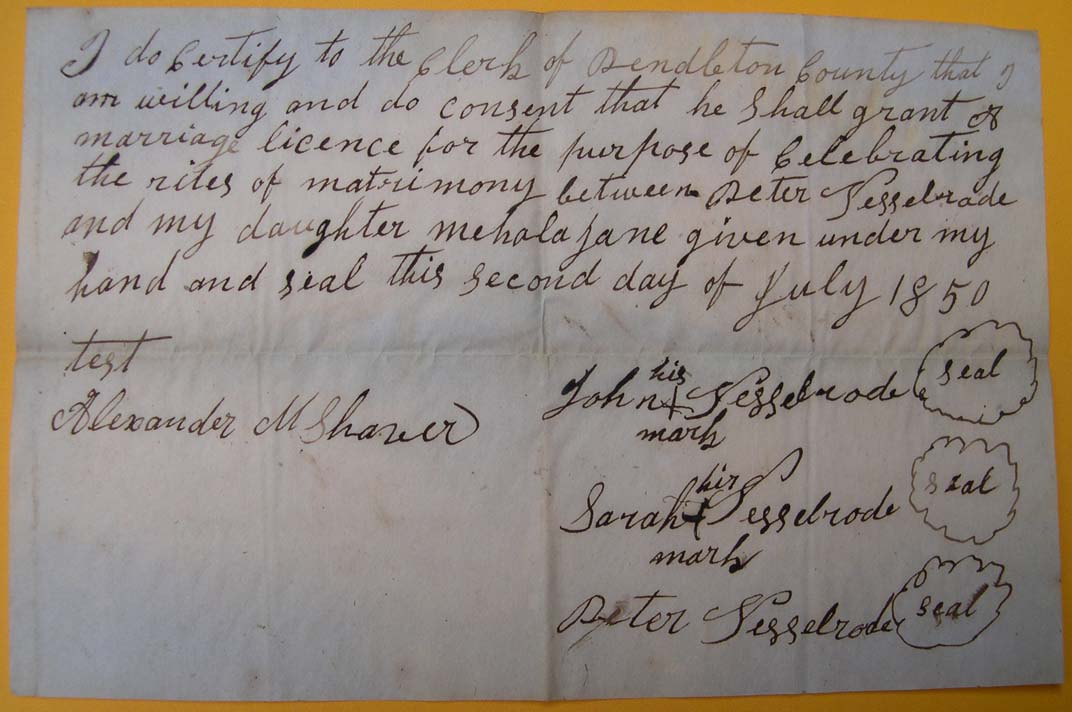 I do Certify to the Clerk of Pendleton County that I
am willing and do consent that he shall grant
marriage licence for the purpose of Celebrating
the rites of matrimony between Peter Nesselrode
and my daughter mehala jane given under my
hand and seal this second day of July 1850
test
Alexander M Shaver
his
John + Nesselrode seal
mark
her
Sarah + Nesselrode seal
mark
Peter Nesselrode seal